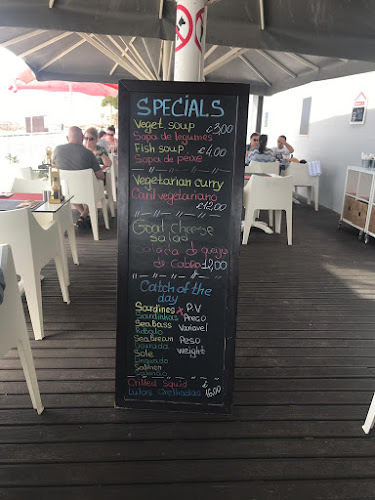 SPECIALS
Veget soup €3,00
Sopa de legumes
Fish soup €4,00
Sopa de peixe
Vegetarian curry
Caril vegetariano €12,00
Goat cheese
salad
Salada de queijo
de cabra 12,00
Catch of the
day
Sardines P.V
Sardinhas Preço
Seabass Variavel
Robalo
Sea Bream Peso
Dourada weight
Sole
Linguado
Salmon
Salmão
Grilled Squid €
Lulas Grelhadas 16,00